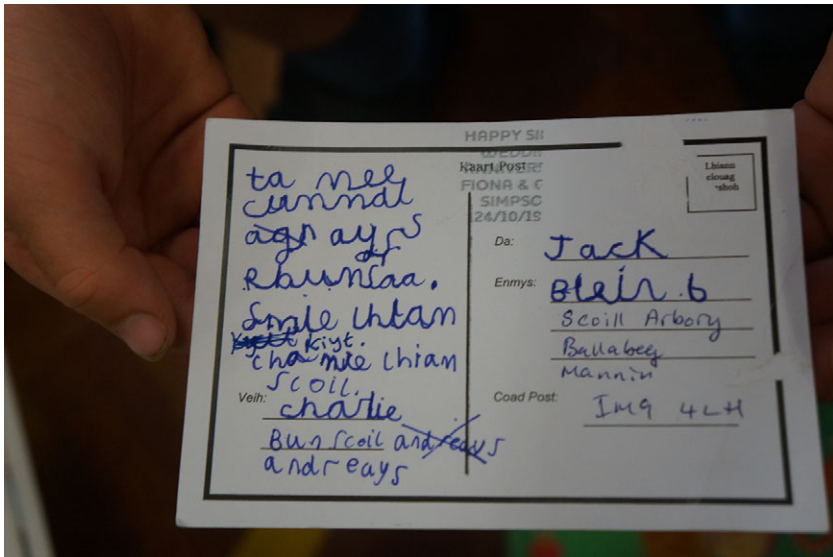 HAPPY SI
WEDDI
Kaart Post
FIONA & C
SIMPSO
24/10/19
Lhiann
clouag
shoh
ta mee
cummal
ayns
Rhumsaa.
Smie lhiam
kiyt.
cha mie lhiam
scoil.
Veih: charlie
Bunscoil andreays
andreays
Da: Jack
Enmys: Blein. 6
Scoill Arbory
Ballabeg
Mannin
Coad Post: IM9 4LH